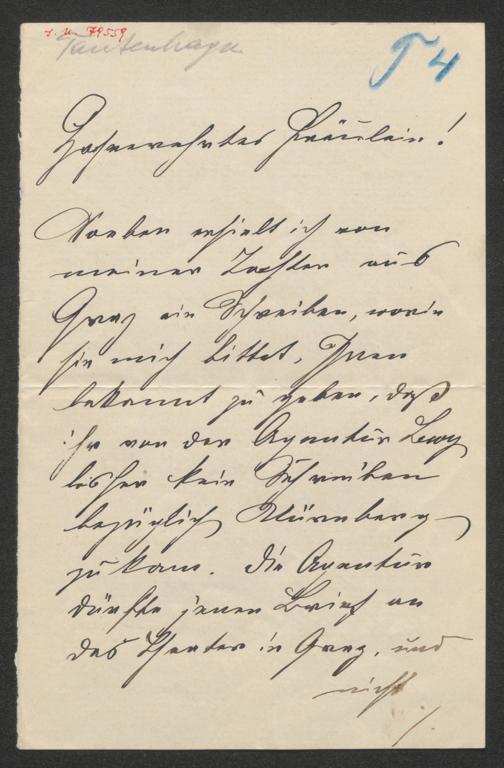 I. N. 79559
Tautenhayn
T 4
Hochverehrtes Fräulein!
Soeben erhielt ich von
meiner Tochter aus
Graz ein Schreiben, worin
sie mich bittet, Ihnen
bekannt zu geben, daß
ihr von der Agentur
bisher kein Schreiben
bezüglich Nürnberg
zu kam. Die Agentur
dürfte jenen Brief an
das Theater in Graz, und
nicht
./.